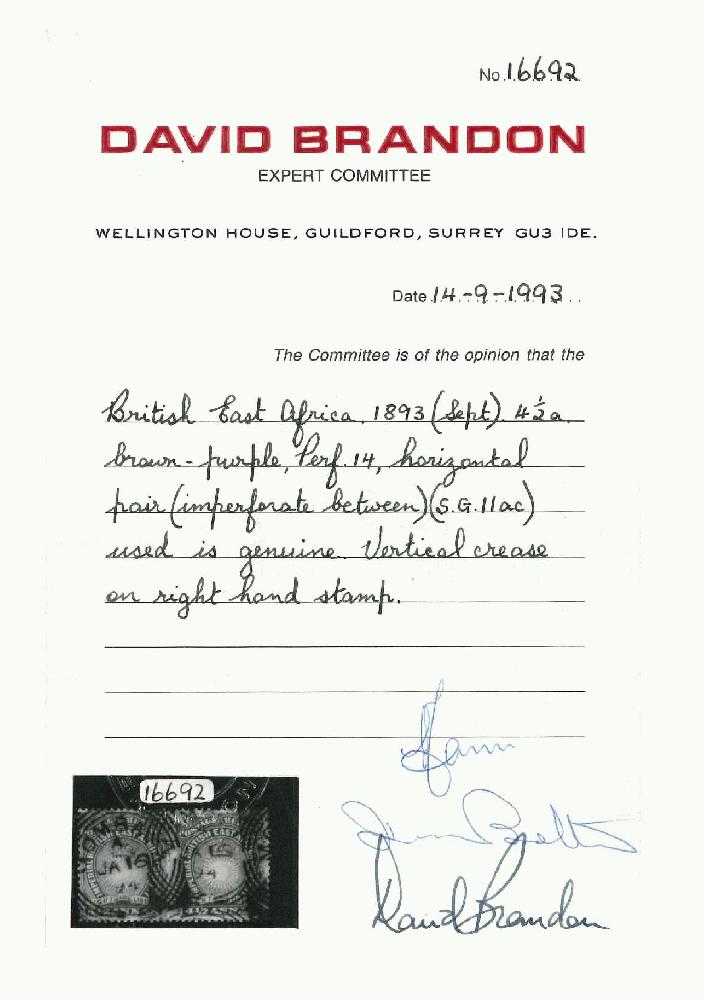 No. 16692
DAVID BRANDON
EXPERT COMMITTEE
WELLINGTON HOUSE, GUILDFORD, SURREY GU3 IDE.
Date 14-9-1993
The Committee is of the opinion that the
British East Africa 1893 (Sept) 4½a
brown-purple, Perf. 14, horizontal
pair (imperforate between) (S.G. 11ac)
used is genuine. Vertical crease
on right hand stamp.
16692
JA 16
David Brandon